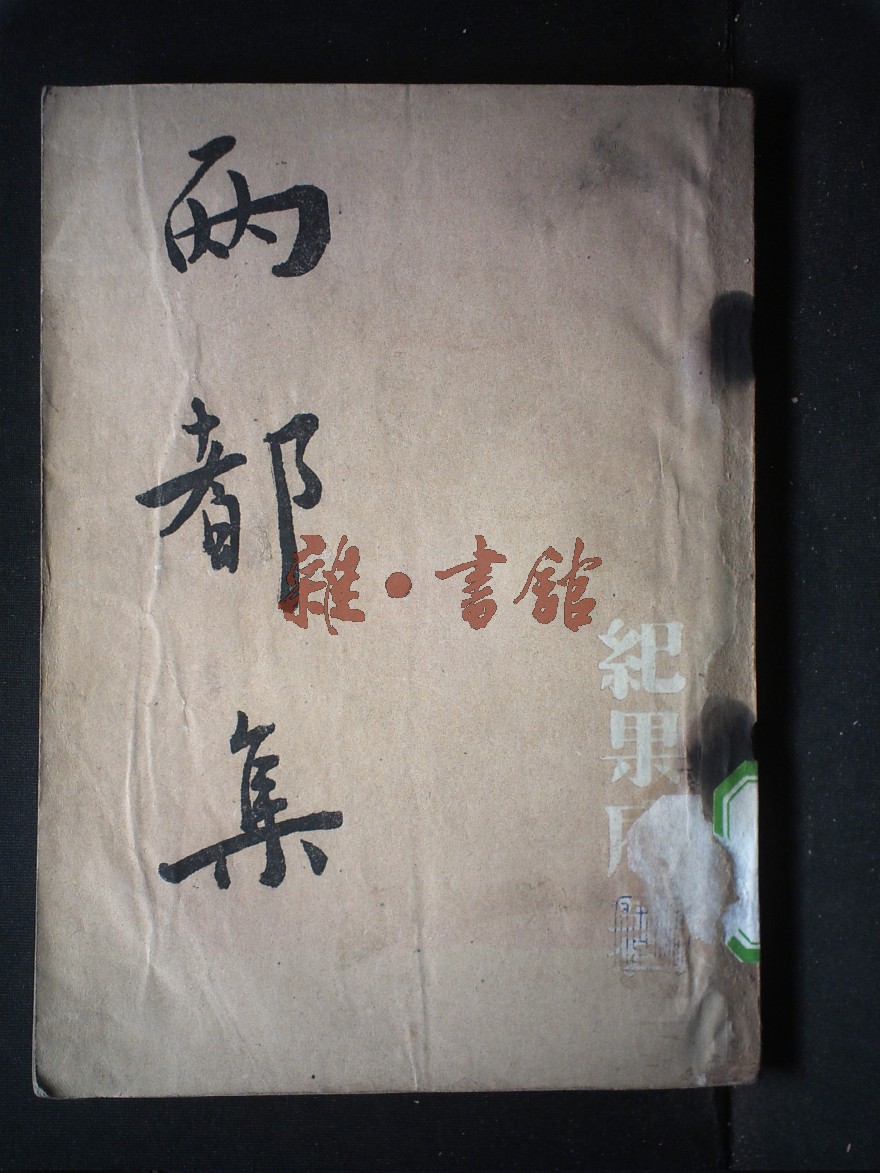 兩都集
雜·書館
紀果